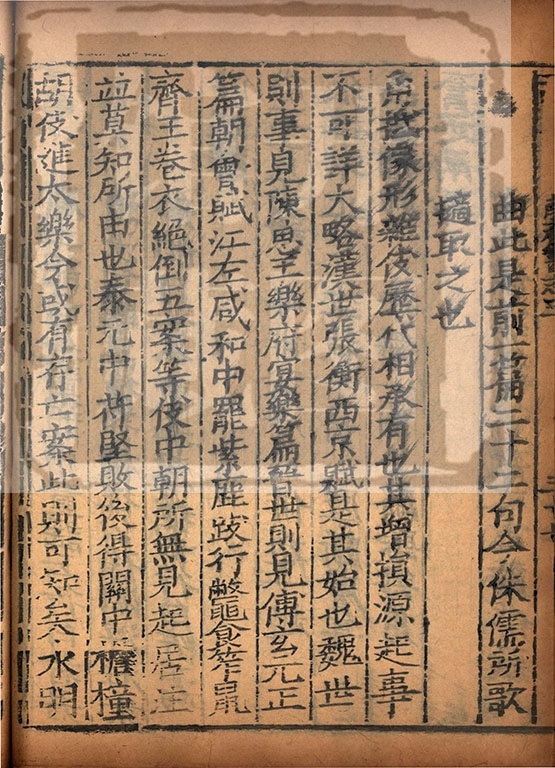 曲此是前一篇二十二句今侏儒所歌
擿取之也
角抵像形雜伎歷代相承有也其增損源起事
不可詳大略漢世張衡西京賦是其始也魏世
則事見陳思王樂府宴樂篇晉世則見傅玄元正
篇朝會賦江左咸和中罷紫鹿跂行鼈食笮鼠
齊王卷衣絕倒五案等伎中朝所無見起居注
並莫知所由也泰元中苻堅敗後得關中檐橦
胡伎進太樂今或有存亡案此則可知矣永明